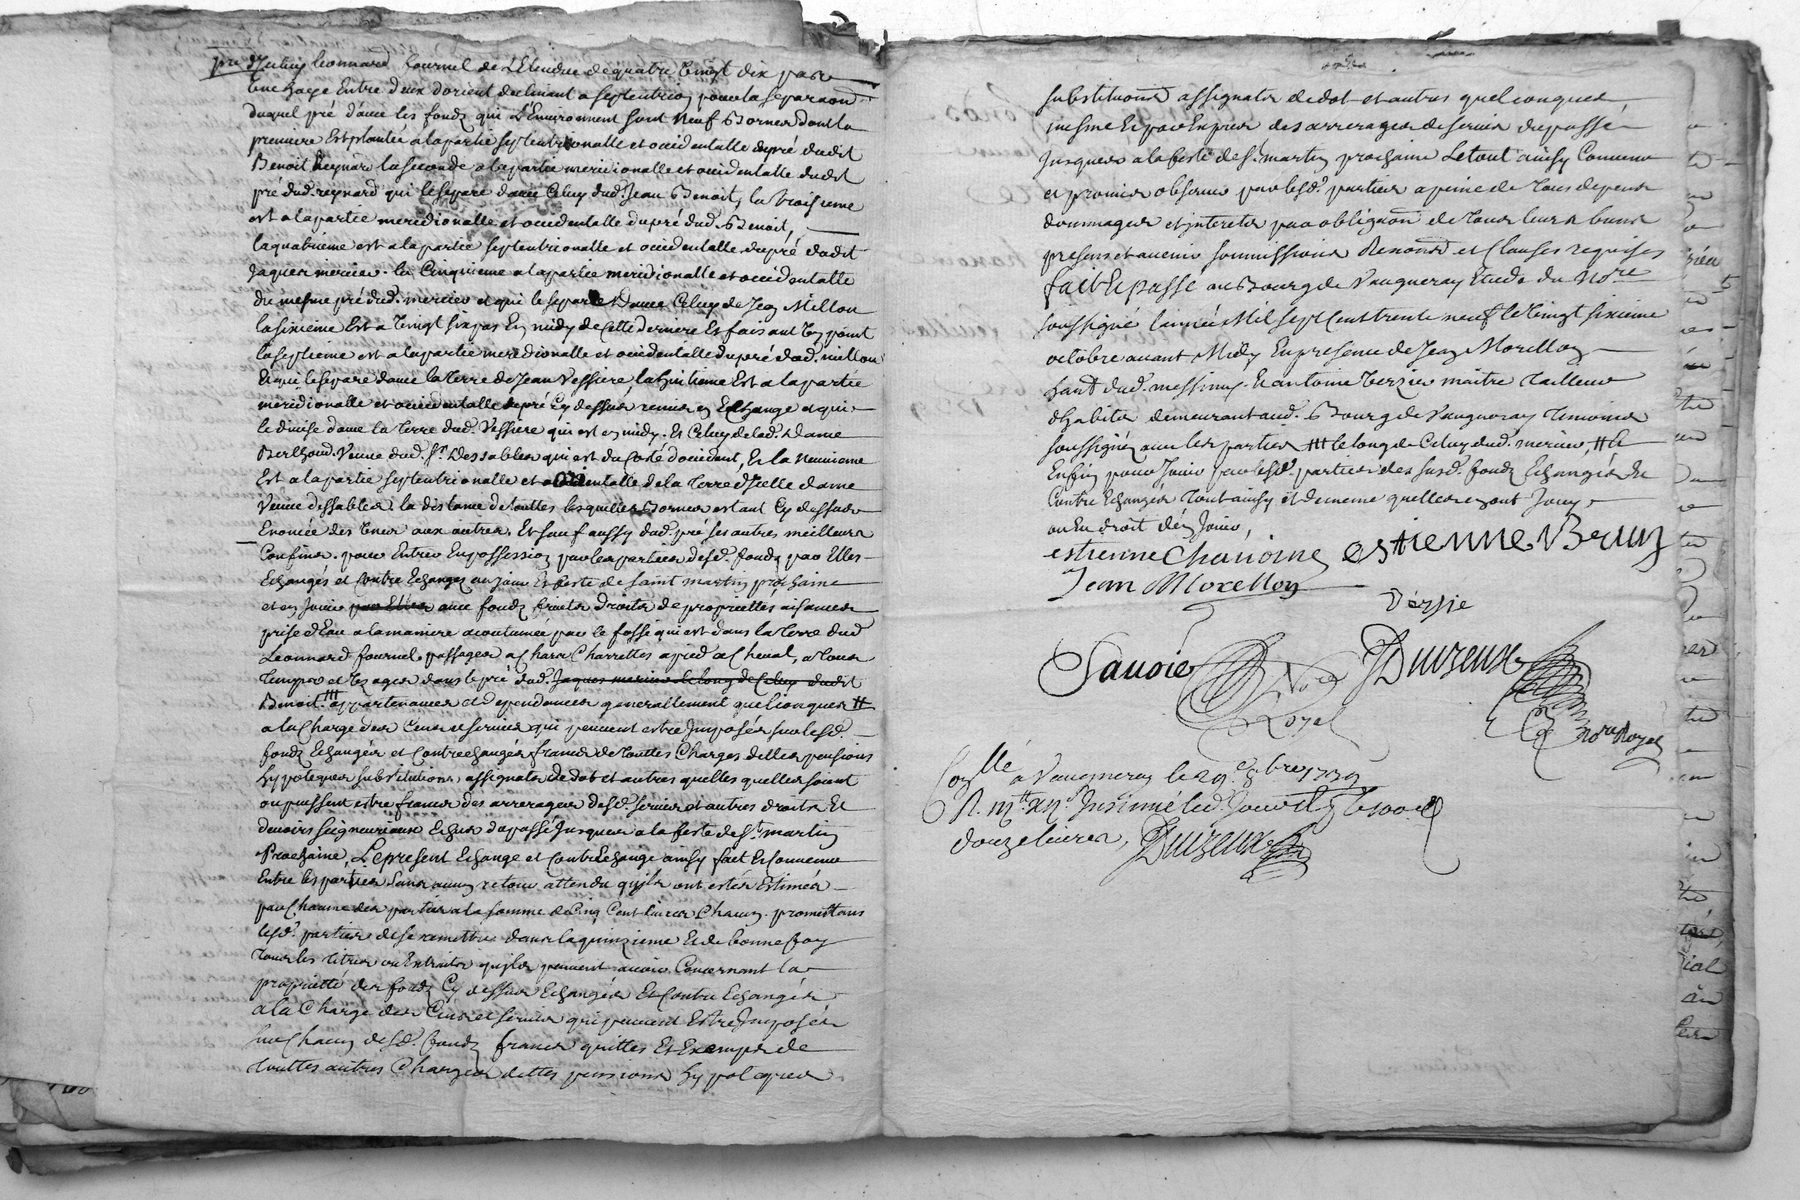 pré d'Iceluy leonnard fournel de l'Etendue de quatre vingt dix pas
une haye Entre deux d'orient declinant a septentrion, pour la separaon
duquel pré d'avec les fonds qui L'Environnent sont Neuf Bornes dont la
premiere Est plantée a la partie septentrionalle et occidentalle du pré dudit
Benoit Reynard la seconde a la partie meridionalle et occidentalle dudit
pré dud. reynard qui le separe d'avec Celuy dud. Jean Benoit, la troisieme
est a la partie meridionalle et occidentalle du pré dud. Benoit,
la quatrieme est a la partie septentrionalle et occidentalle du pré dudit
Jaques mercier. la Cinquieme a la partie meridionalle et occidentalle
du mesme pré dud. mercier et qui le separe d'avec Celuy de Jean Millon
la sixieme Est a vingt six pas En midy de cette derniere Et faisant un point
la septieme est a la partie meridionalle et occidentalle du pré dud. millon
Et qui le separe d'avec la terre de Jean Vessiere la huitieme Est a la partie
meridionalle et occidentalle du pré Cy dessus remis en Echange et qui
le divise d'avec la terre dud. Vessiere qui est en midy. Et Celuy de lad. Dame
Berthoud Veuve dud. Sr. Dessables qui est du Costé d'occident, Et la Neuvieme
Est a la partie septentrionalle et occidentalle de la terre d'Icelle dame
Veuve dessables la distance de touttes lesquelles Bornes estant Cy dessus
Enoncée des unes aux autres, Et sauf aussy dud. pré ses autres meilleurs
Confins. pour Entrer En possession par les parties desd. fonds par Elles
Echangés et Contre Echangés au jour Et feste de saint martin prochaine
et en Jouir par Elles avec fonds fruits droits de proprietés aisances
prise d'Eau a la maniere acoutumée par le fossé qui est dans la terre dud
Leonnard fournel, passages a Chars Charrettes a pied a Cheval, a tous
temps et usages dans le pré dud. Jaques mercier le long de Celuy dudit
Benoit, ### appartenances et dependances generallement quelconques #
a la Charge des Cens et servis qui peuvent estre Imposés sur lesd.
fonds Echangés et Contrechangés francs de touttes Charges dettes pensions
hypoteques substitutions, assignats de dot et autres quelles quelles soient
ou puissent estre francs des arrerages desd. servis et autres droits Et
devoirs seigneuriaux Echus du passé Jusques a la feste de St. martin
Prochaine, Le present Echange et Contre Echange ainsy fait Et Convenu
Entre les parties sans aucun retour attendu qu'ils ont estés Estimés
par Chacune des parties a la somme de Cinq Cent livres Chacun. promettans
lesd. parties de se remettre dans la quinzieme Et de bonne foy
tous les titres ou Extraits qu'ils peuvent avoir Concernant la
proprietté des fonds Cy dessus Echangés Et Contre Echangés
a la Charge des Cens et servis qui peuvent Estre Imposés
sur Chacun desd. fonds francs quittes Et Exempts de
touttes autres Charges dettes pensions hypoteques
substitutions assignats de dot et autres quelconques
mesme Et par Exprés des arrerages de servis du passé
Jusques a la feste de St. martin prochaine Le tout ainsy Convenu
et promis observer par lesd. parties a peine de tous depens
dommages et interets par obligaon de tous leurs biens
presens et avenir soumissions Renonons et Clauses requises
fait Et passé au Bourg de Vaugneray Etude du Nore.
soussigné l'année Mil sept Cent trente neuf le vingt sixieme
octobre avant Midy En presence de Jean Morillon
hant. dud. messimy. Et antoine Verzie maitre tailleur
d'habits demeurant aud. Bourg de Vaugneray temoins
soussignés avec les parties ### le long de Celuy dud. mercier, # le
Enfin pour Jouir par lesd. parties des susd. fonds Echangés Et
Contre Echangés tout ainsy et de meme quelles en ont Jouy
ou Eu droit d'En Jouir,
estienne Chanoine estienne Brun
Jean Morellon
Verzie
Savoie Nore Royal
Duizeux
Nore Royal
Conllé a Vaugneray le 29e 8bre 1739
R. Insinué led. Jour
douze livres, Duizeux